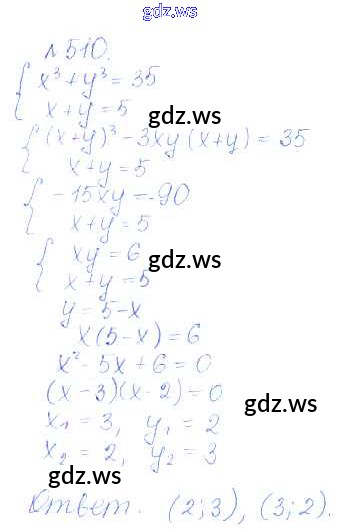 gdz.ws
№510.
{ x³ + y³ = 35
x + y = 5
gdz.ws
{ (x+y)³ - 3xy (x+y) = 35
x + y = 5
{ - 15xy = -90
x + y = 5
{ xy = 6
gdz.ws
x + y = 5
y = 5 - x
x(5 - x) = 6
x² - 5x + 6 = 0
(x - 3)(x - 2) = 0
gdz.ws
x₁ = 3, y₁ = 2
x₂ = 2, y₂ = 3
gdz.ws
Ответ. (2; 3), (3; 2).
gdz.ws